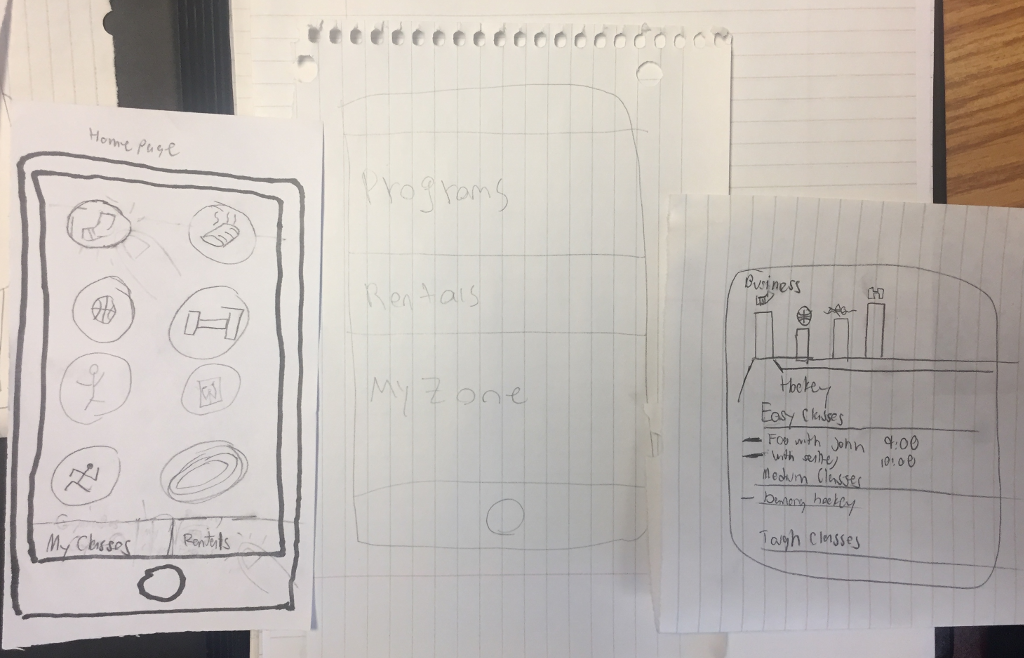 Home page
My Classes
Rentals
Programs
Rentals
My Zone
Business
Hockey
Easy Classes
with John 9:00
with 10:00
Medium Classes
hockey
Tough Classes